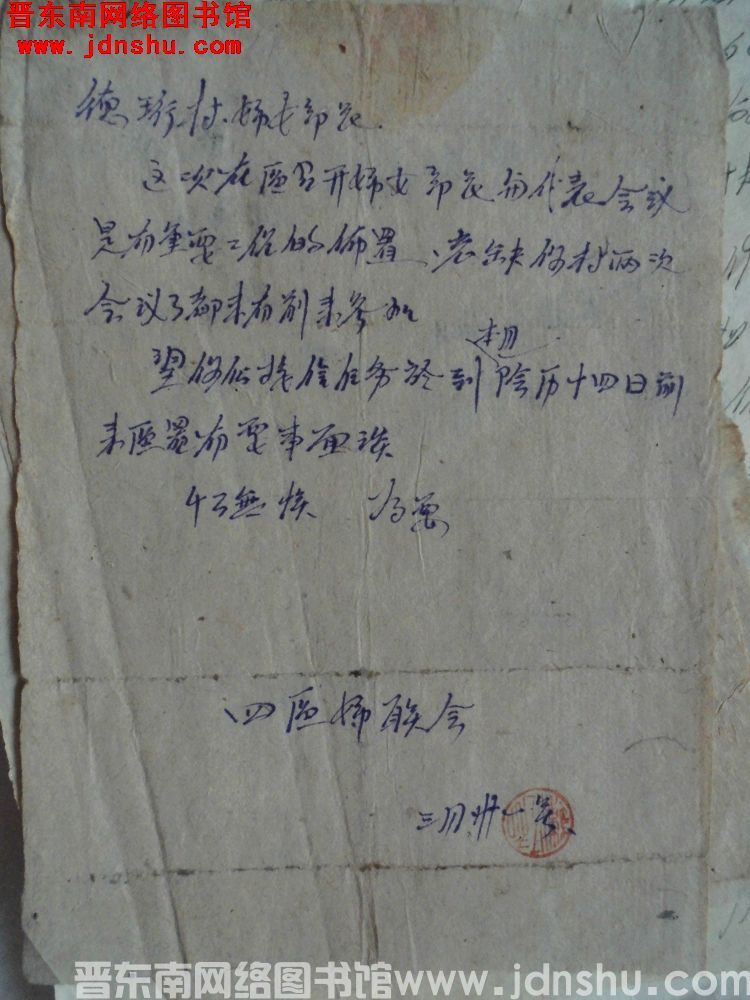 晋东南网络图书馆
www.jdnshu.com
德 村妇女部长
这次在区召开妇女部长和代表会议
是有重要工作的佈置,老缺你村两次
会议了都未有前来参加
本月
望你们接信任务 到阴历十四日前
来区署有要事面谈
切無悮 为要
四区妇联会
三月廿一号
晋东南网络图书馆www.jdnshu.com